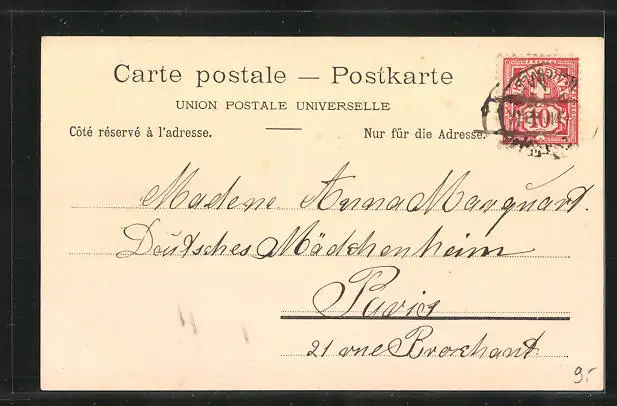 Carte postale — Postkarte
UNION POSTALE UNIVERSELLE
Côté réservé à l'adresse.
Nur für die Adresse.
FRANCO
10
Madene Anna Marquart.
Deutsches Mädchenheim
Paris
21 rue Brochant.
9.-